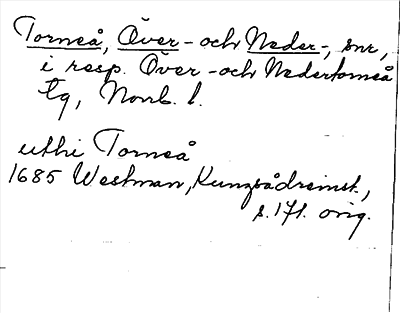 Torneå, Över- och Neder-, snr,
i resp. Över- och Nedertorneå
tg, Norrb. l.
uthi Torneå
1685 Westman, Kungsådreinst.,
s. 171. orig.